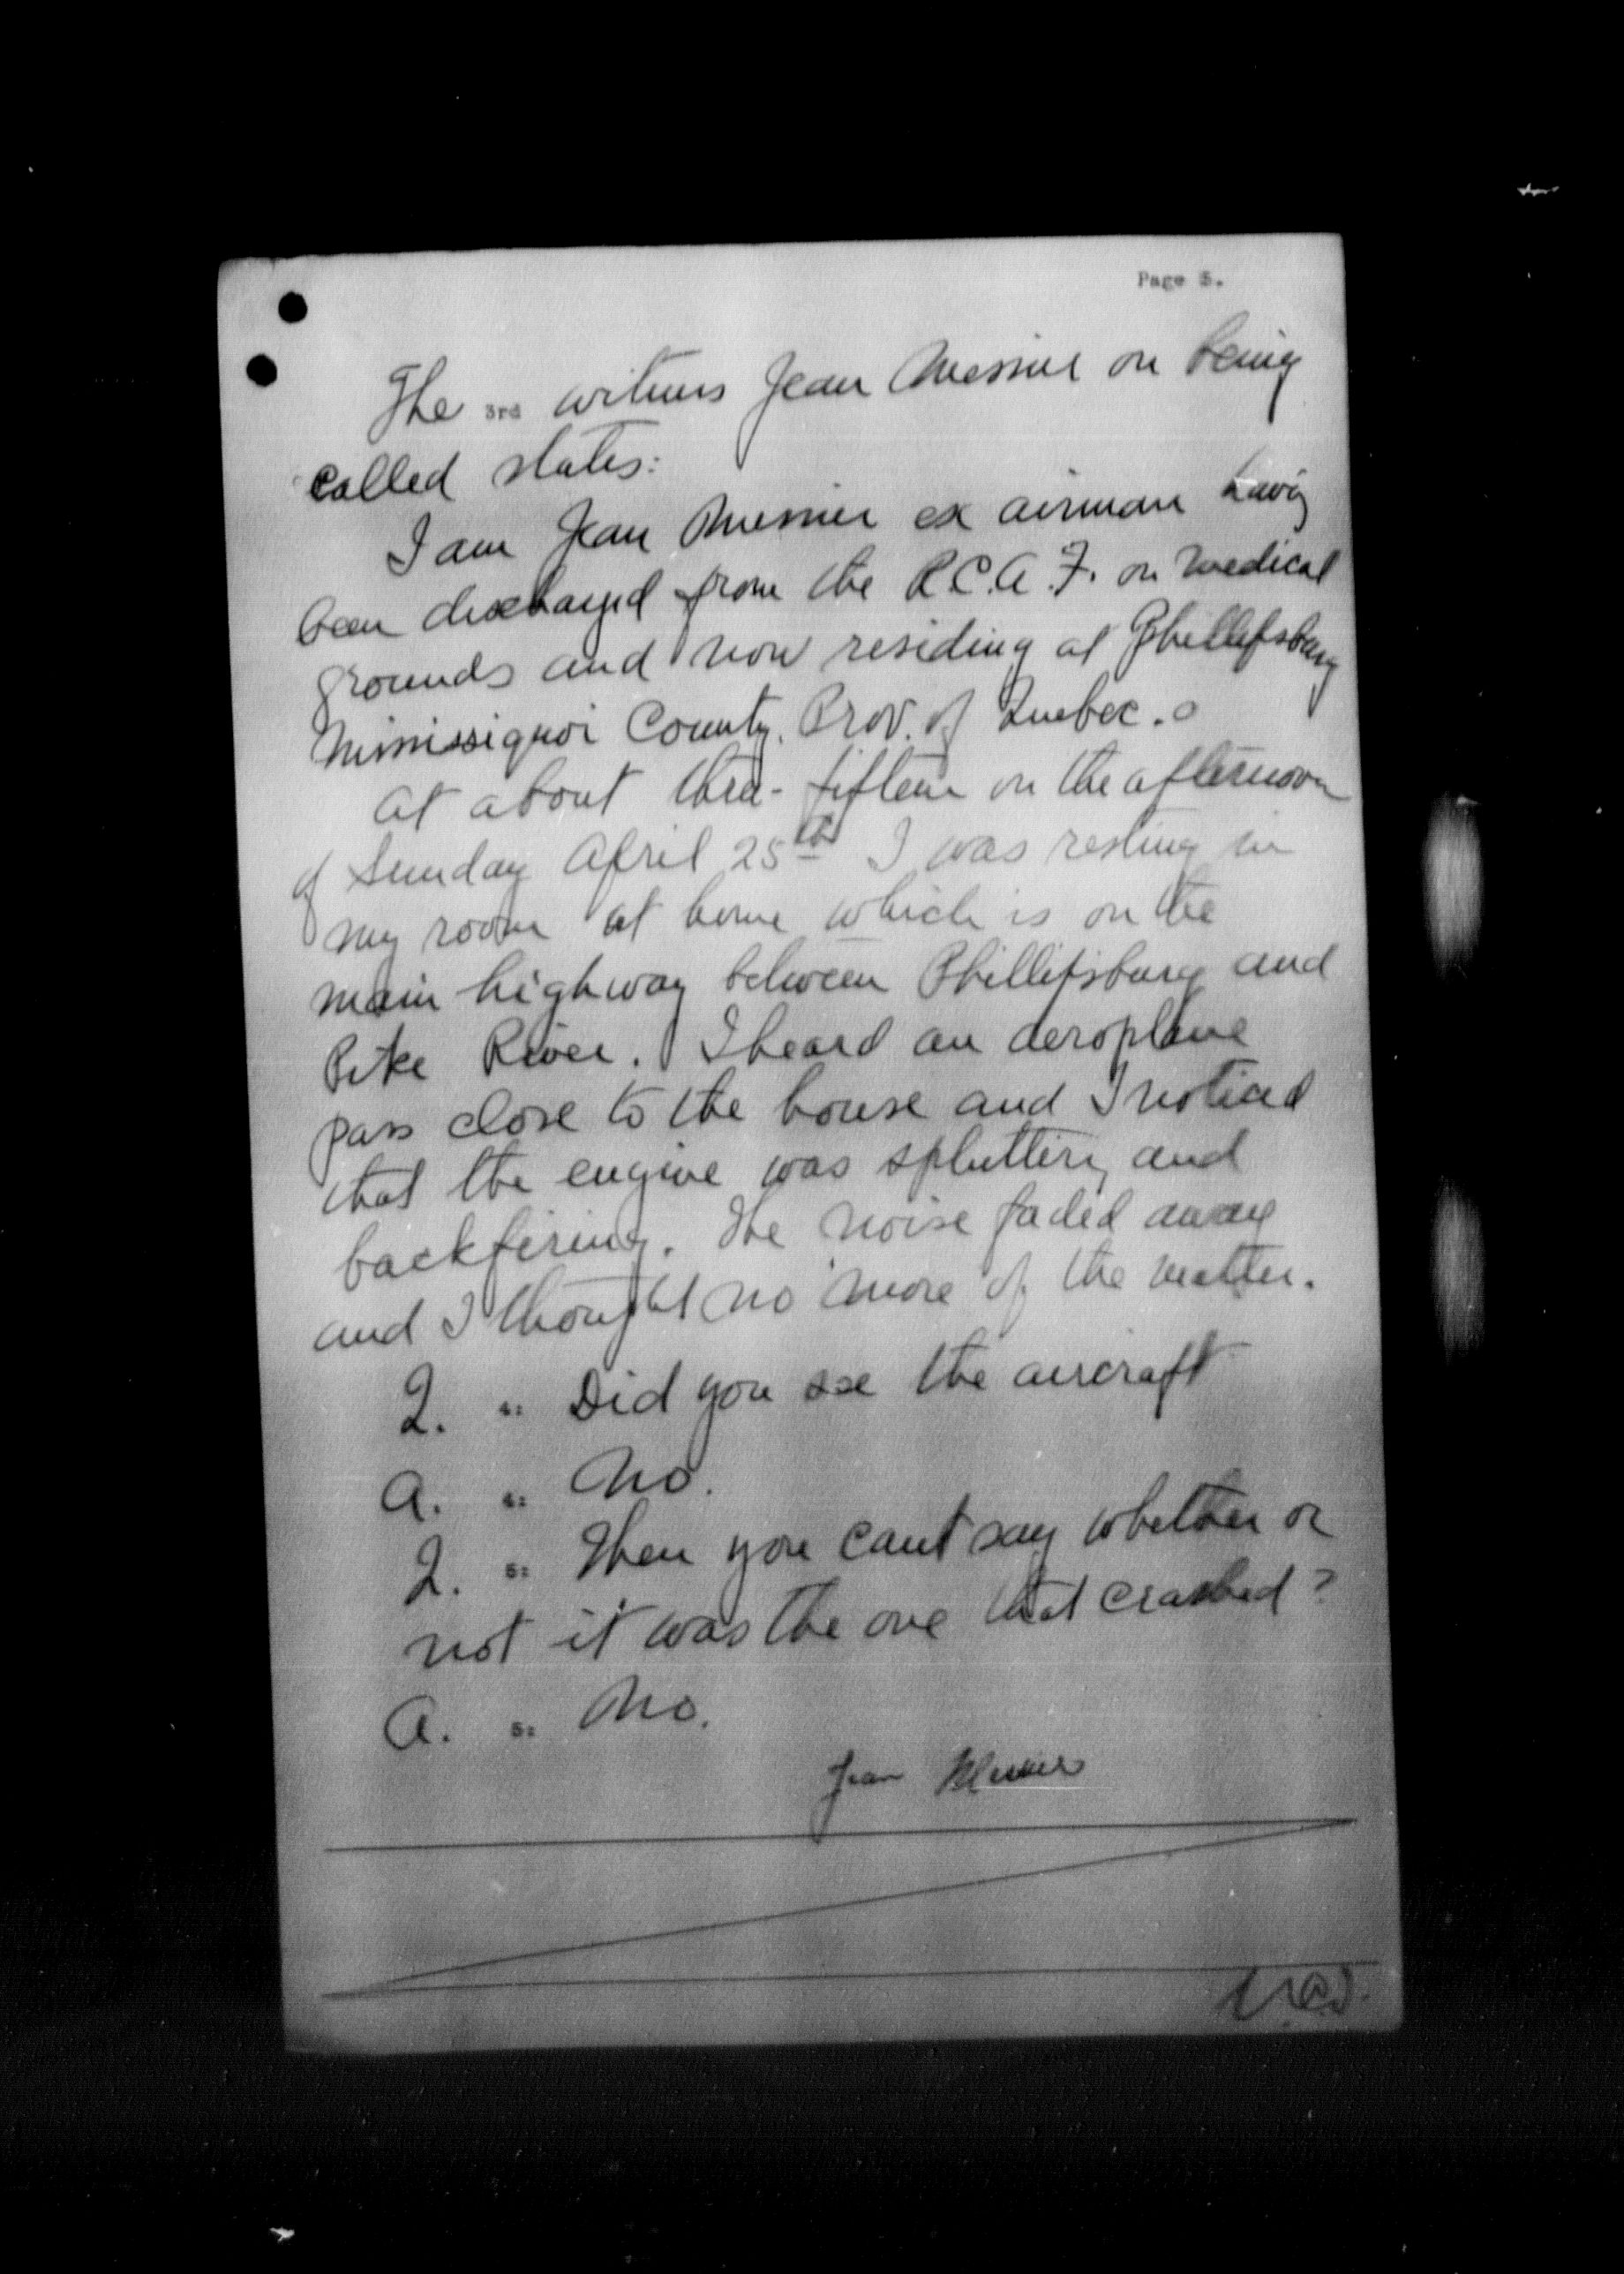 Page 5.
The 3rd witness Jean Messier on being
called states:
I am Jean Messier ex airman having
been discharged from the R.C.A.F. on medical
grounds and now residing at Phillipsburg
Missisquoi County, Prov. of Quebec.
At about three-fifteen on the afternoon
of Sunday April 25th I was resting in
my room at home which is on the
main highway between Phillipsburg and
Pike River. I heard an aeroplane
pass close to the house and I noticed
that the engine was spluttering and
backfiring. The noise faded away
and I thought no more of the matter.
Q. 4: Did you see the aircraft
A. 4: No.
Q. 5: Then you cant say whether or
not it was the one that crashed?
A. 5: No.
Jean Messier